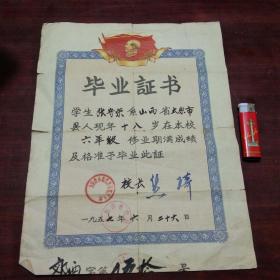 毕业証书
学生 张 荣 系山西省太原市
县人现年十八岁在本校
六年级 修业期满成绩
及格准予毕业此証
校长
一九五七年六月二十六日
字第 伍拾 号